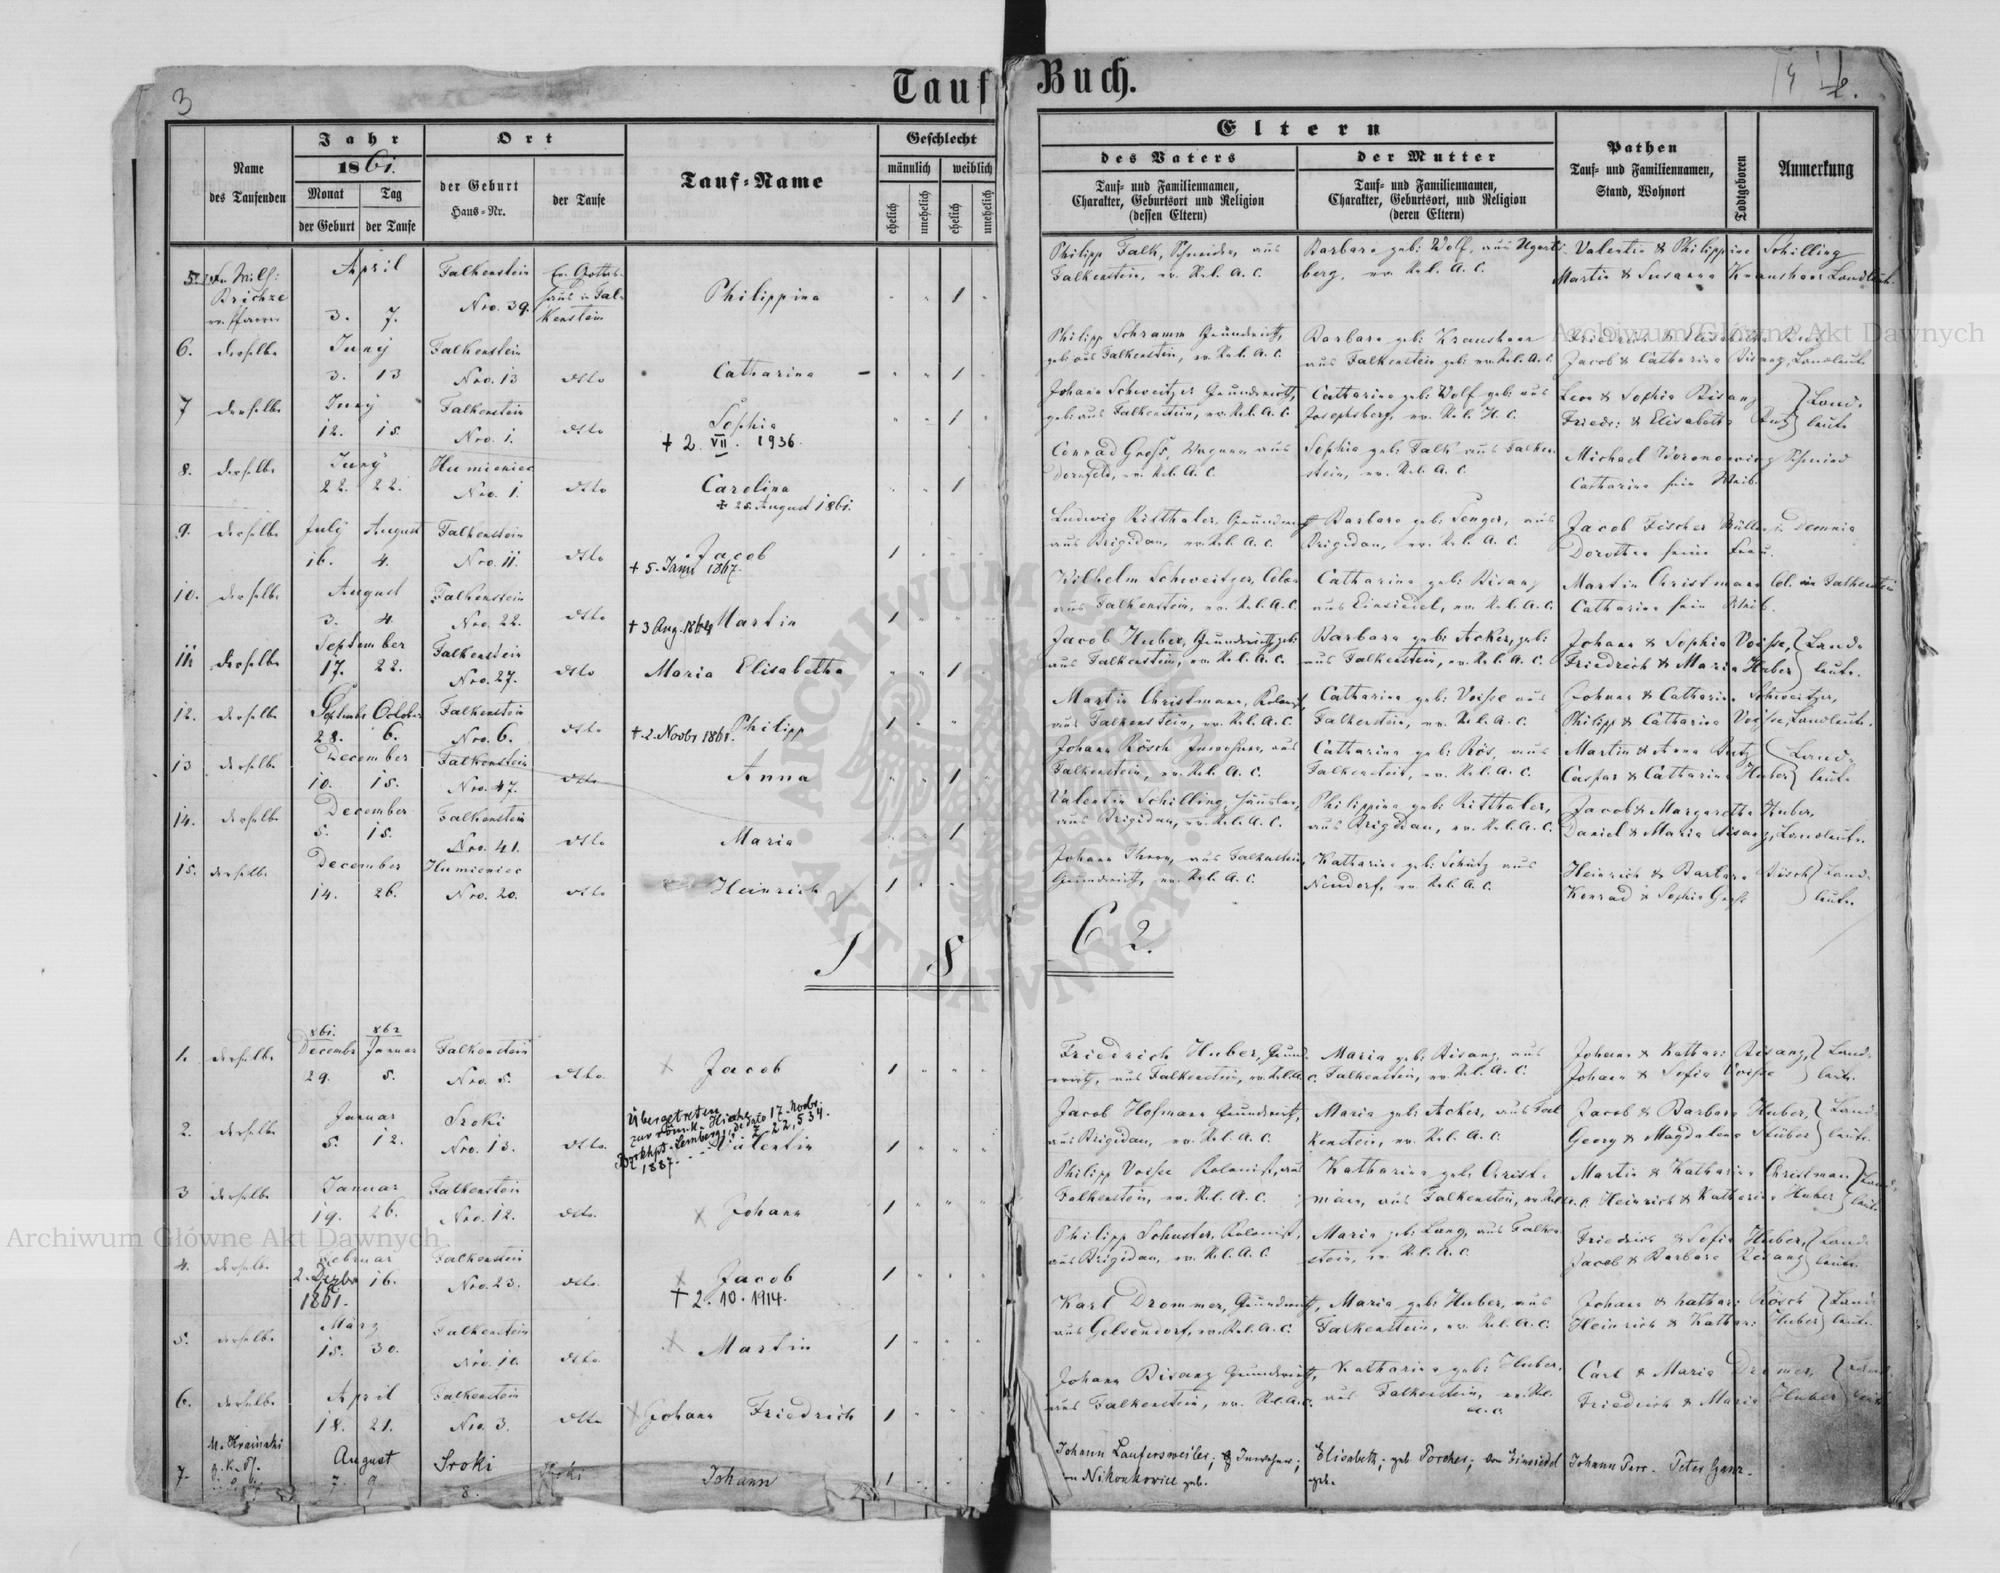 3
Tauf Buch.
2.
Name
des Taufenden
Jahr
1861.
Monat
der Geburt
Tag
der Taufe
Ort
der Geburt
Haus=Nr.
der Taufe
Tauf=Name
Geschlecht
männlich
weiblich
ehelich
unehelich
ehelich
unehelich
Eltern
des Vaters
Tauf= und Familiennamen,
Charakter, Geburtsort und Religion
(dessen Eltern)
der Mutter
Tauf= und Familiennamen,
Charakter, Geburtsort, und Religion
(deren Eltern)
Pathen
Tauf= und Familiennamen,
Stand, Wohnort
Todtgeboren
Anmerkung
5. Wilh: Brichze ev. Pfarrer
April
3. 7.
Falkenstein
Nro. 39.
ev. Gottesh. in Falkenstein
Philippina
1
Philipp Falk, Schneider, aus
Falkenstein, ev. Rel. A. C.
Barbara geb: Wolf, aus Ugartsberg, ev. Rel. A. C.
Valentin & Philippine Schilling
Martin & Susanna Kraushaar Landleute.
6. derselbe
Juny
3. 13
Falkenstein
Nro. 13
detto
Catharina
1
Philipp Schramm Grundwirth,
geb: aus Falkenstein, ev. Rel. A. C.
Barbara geb: Kraushaar
aus Falkenstein geb: ev. Rel. A. C.
Friedrich & Elisabeth Butz
Jacob & Catharina Bisanz, Landleute
7 derselbe
Juny
12. 15.
Falkenstein
Nro. 1.
detto
Sophia
+ 2. VII. 1936.
1
Johann Schweitzer Grundwirth,
geb: aus Falkenstein, ev. Rel. A. C.
Catharina geb: Wolf geb: aus
Josephsberg, ev. Rel. H. C.
Leon & Sophia Bisanz
Friedr: & Elisabeth Butz } Landleute
8. derselbe
Juny
22. 22.
Humieniec
Nro. 1.
detto
Carolina
+ 25. August 1861.
1
Conrad Gross, Wagner aus
Dornfeld, ev. Rel. A. C.
Sophia geb: Falk aus Falkenstein, ev. Rel. A. C.
Michael Schmied
Catharina sein Weib.
9. derselbe
July August
16. 4.
Falkenstein
Nro. 11.
detto
Jacob
+ 5. 1867.
1
Ludwig Ritthaler, Grundwirth
aus Brigidau, ev. Rel. A. C.
Barbara geb: Senger, aus
Brigidau, ev. Rel. A. C.
Jacob Fischer Müller, in Demnia
Dorothea seine Frau.
10. derselbe
August
3. 4.
Falkenstein
Nro. 22.
detto
+ 3 Aug. 1864 Martin
1
Wilhelm Schweitzer, Colon
aus Falkenstein, ev. Rel. A. C.
Catharina geb: Bisanz
aus Einsiedel, ev. Rel. A. C.
Martin Christmann Col. in Falkenstein
Catharina sein Weib.
11. derselbe
September
17. 22.
Falkenstein
Nro. 27.
detto
Maria Elisabetha
1
Jacob Huber, Grundwirth, geb:
aus Falkenstein, ev. Rel. A. C.
Barbara geb: Acker, geb:
aus Falkenstein, ev. Rel. A. C.
Johann & Sophia Voisse,
Friedrich & Maria Huber } Landleute.
12. derselbe
September October
28. 6.
Falkenstein
Nro. 6.
detto
+ 2. Novbr 1861. Philipp
1
Martin Christmann, Kolonist,
aus Falkenstein, ev. Rel. A. C.
Catharina geb: Voisse aus
Falkenstein, ev. Rel. A. C.
Johann & Catharina Schweitzer,
Philipp & Catharina Voisse, Landleute.
13 derselbe
December
10. 15.
Falkenstein
Nro. 47.
detto
Anna
1
Johann Rösch Inwohner, aus
Falkenstein, ev. Rel. A. C.
Catharina geb: Rös, aus
Falkenstein, ev. Rel. A. C.
Martin & Anna Butz
Caspar & Catharina Huber } Landleute
14. derselbe
December
5. 15.
Falkenstein
Nro. 41.
detto
Maria
1
Valentin Schilling, Häusler,
aus Brigidau, ev. Rel. A. C.
Philippina geb: Ritthaler,
aus Brigidau, ev. Rel. A. C.
Jacob & Margaretha Huber,
Daniel & Maria Bisanz, Landleute.
15. derselbe
December
14. 26.
Humieniec
Nro. 20.
detto
Heinrich
1
Johann aus Falkenstein,
Grundwirth, ev. Rel. A. C.
Katharina geb: Schütz aus
Neudorf, ev. Rel. A. C.
Heinrich & Barbara
Konrad & Sophia Gross } Landleute
C 2.
1. derselbe
861. 862
December Januar
29. 5.
Falkenstein
Nro. 5.
detto
Jacob
1
Friedrich Huber, Grundwirth, aus Falkenstein, ev. Rel. A. C.
Maria geb: Bisanz, aus
Falkenstein, ev. Rel. A. C.
Johann & Kathar: Bisanz,
Johann & Sofia Voisse } Landleute.
2. derselbe
Januar
5. 12.
Sroki
Nro. 13.
detto
Übergetreten
zur röm. k. Kirche
Bezrkhpt. Lemberg, de dato 17. Novbr.
1887. Z. 22,534.
Valentin
1
Jacob Hofmann Grundwirth,
aus Brigidau, ev. Rel. A. C.
Maria geb: Acker, aus Falkenstein, ev. Rel. A. C.
Jacob & Barbara Huber,
Georg & Magdalena Stüber } Landleute.
3 derselbe
Januar
19. 26.
Falkenstein
Nro. 12.
detto
Johann
1
Philipp Voisse Kolonist, aus
Falkenstein, ev. Rel. A. C.
Katharina geb: Christmann, aus Falkenstein, ev. Rel. A. C.
Martin & Katharina Christman
Heinrich & Katharina Huber } Landleute
4. derselbe
Februar
2. Dezbr 16.
1861.
Falkenstein
Nro. 23.
detto
Jacob
+ 2. 10. 1914.
1
Philipp Schuster, Kolonist,
aus Brigidau, ev. Rel. A. C.
Maria geb: Lang, aus Falkenstein, ev. Rel. A. C.
Friedrich & Sofia Huber,
Jacob & Barbara Bisanz } Landleute.
5. derselbe
März
15. 30.
Falkenstein
Nro. 10.
detto
Martin
1
Karl Drommer, Grundwirth,
aus Gelsendorf, ev. Rel. A. C.
Maria geb: Huber, aus
Falkenstein, ev. Rel. A. C.
Johann & Kathar: Rösch
Heinrich & Kathar: Huber } Landleute.
6. derselbe
April
18. 21.
Falkenstein
Nro. 3.
detto
Johann Friedrich
1
Johann Bisanz Grundwirth,
aus Falkenstein, ev. Rel. A. C.
Katharina geb: Huber,
aus Falkenstein, ev. Rel.
A. C.
Carl & Maria Dromer,
Friedrich & Maria Huber } Landleute
7.
August
7. 9
Sroki
8.
Sroki
Johann
1
Johann Laufersweiler; Inwohner;
in Nikonkowice geb.
Elisabeth, geb Porcher; von Einsiedel
geb.
Johann Parr. Peter Ganz.
Archiwum Główne Akt Dawnych
Archiwum Główne Akt Dawnych
ARCHIWUM GŁÓWNE AKT DAWNYCH